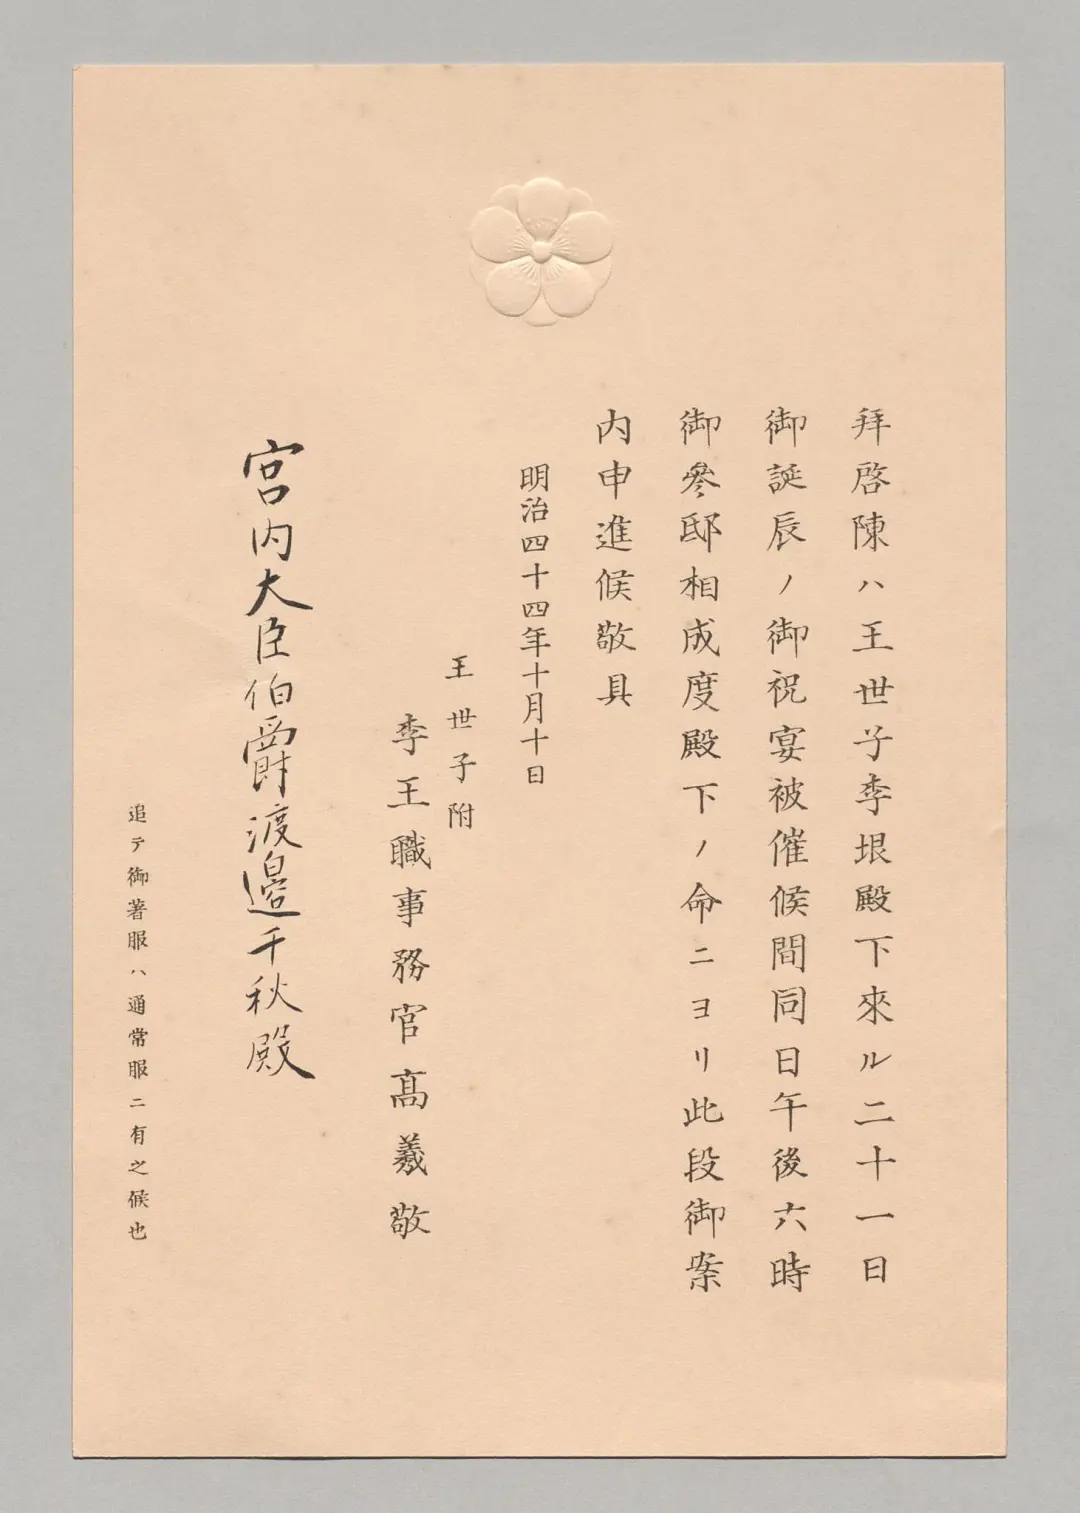 拜啓陳ハ王世子李垠殿下來ル二十一日
御誕辰ノ御祝宴被催候間同日午後六時
御參邸相成度殿下ノ命ニヨリ此段御案
内申進候敬具
明治四十四年十月十日
王世子附
李王職事務官高羲敬
宮内大臣伯爵渡邉千秋殿
追テ御著服ハ通常服ニ有之候也